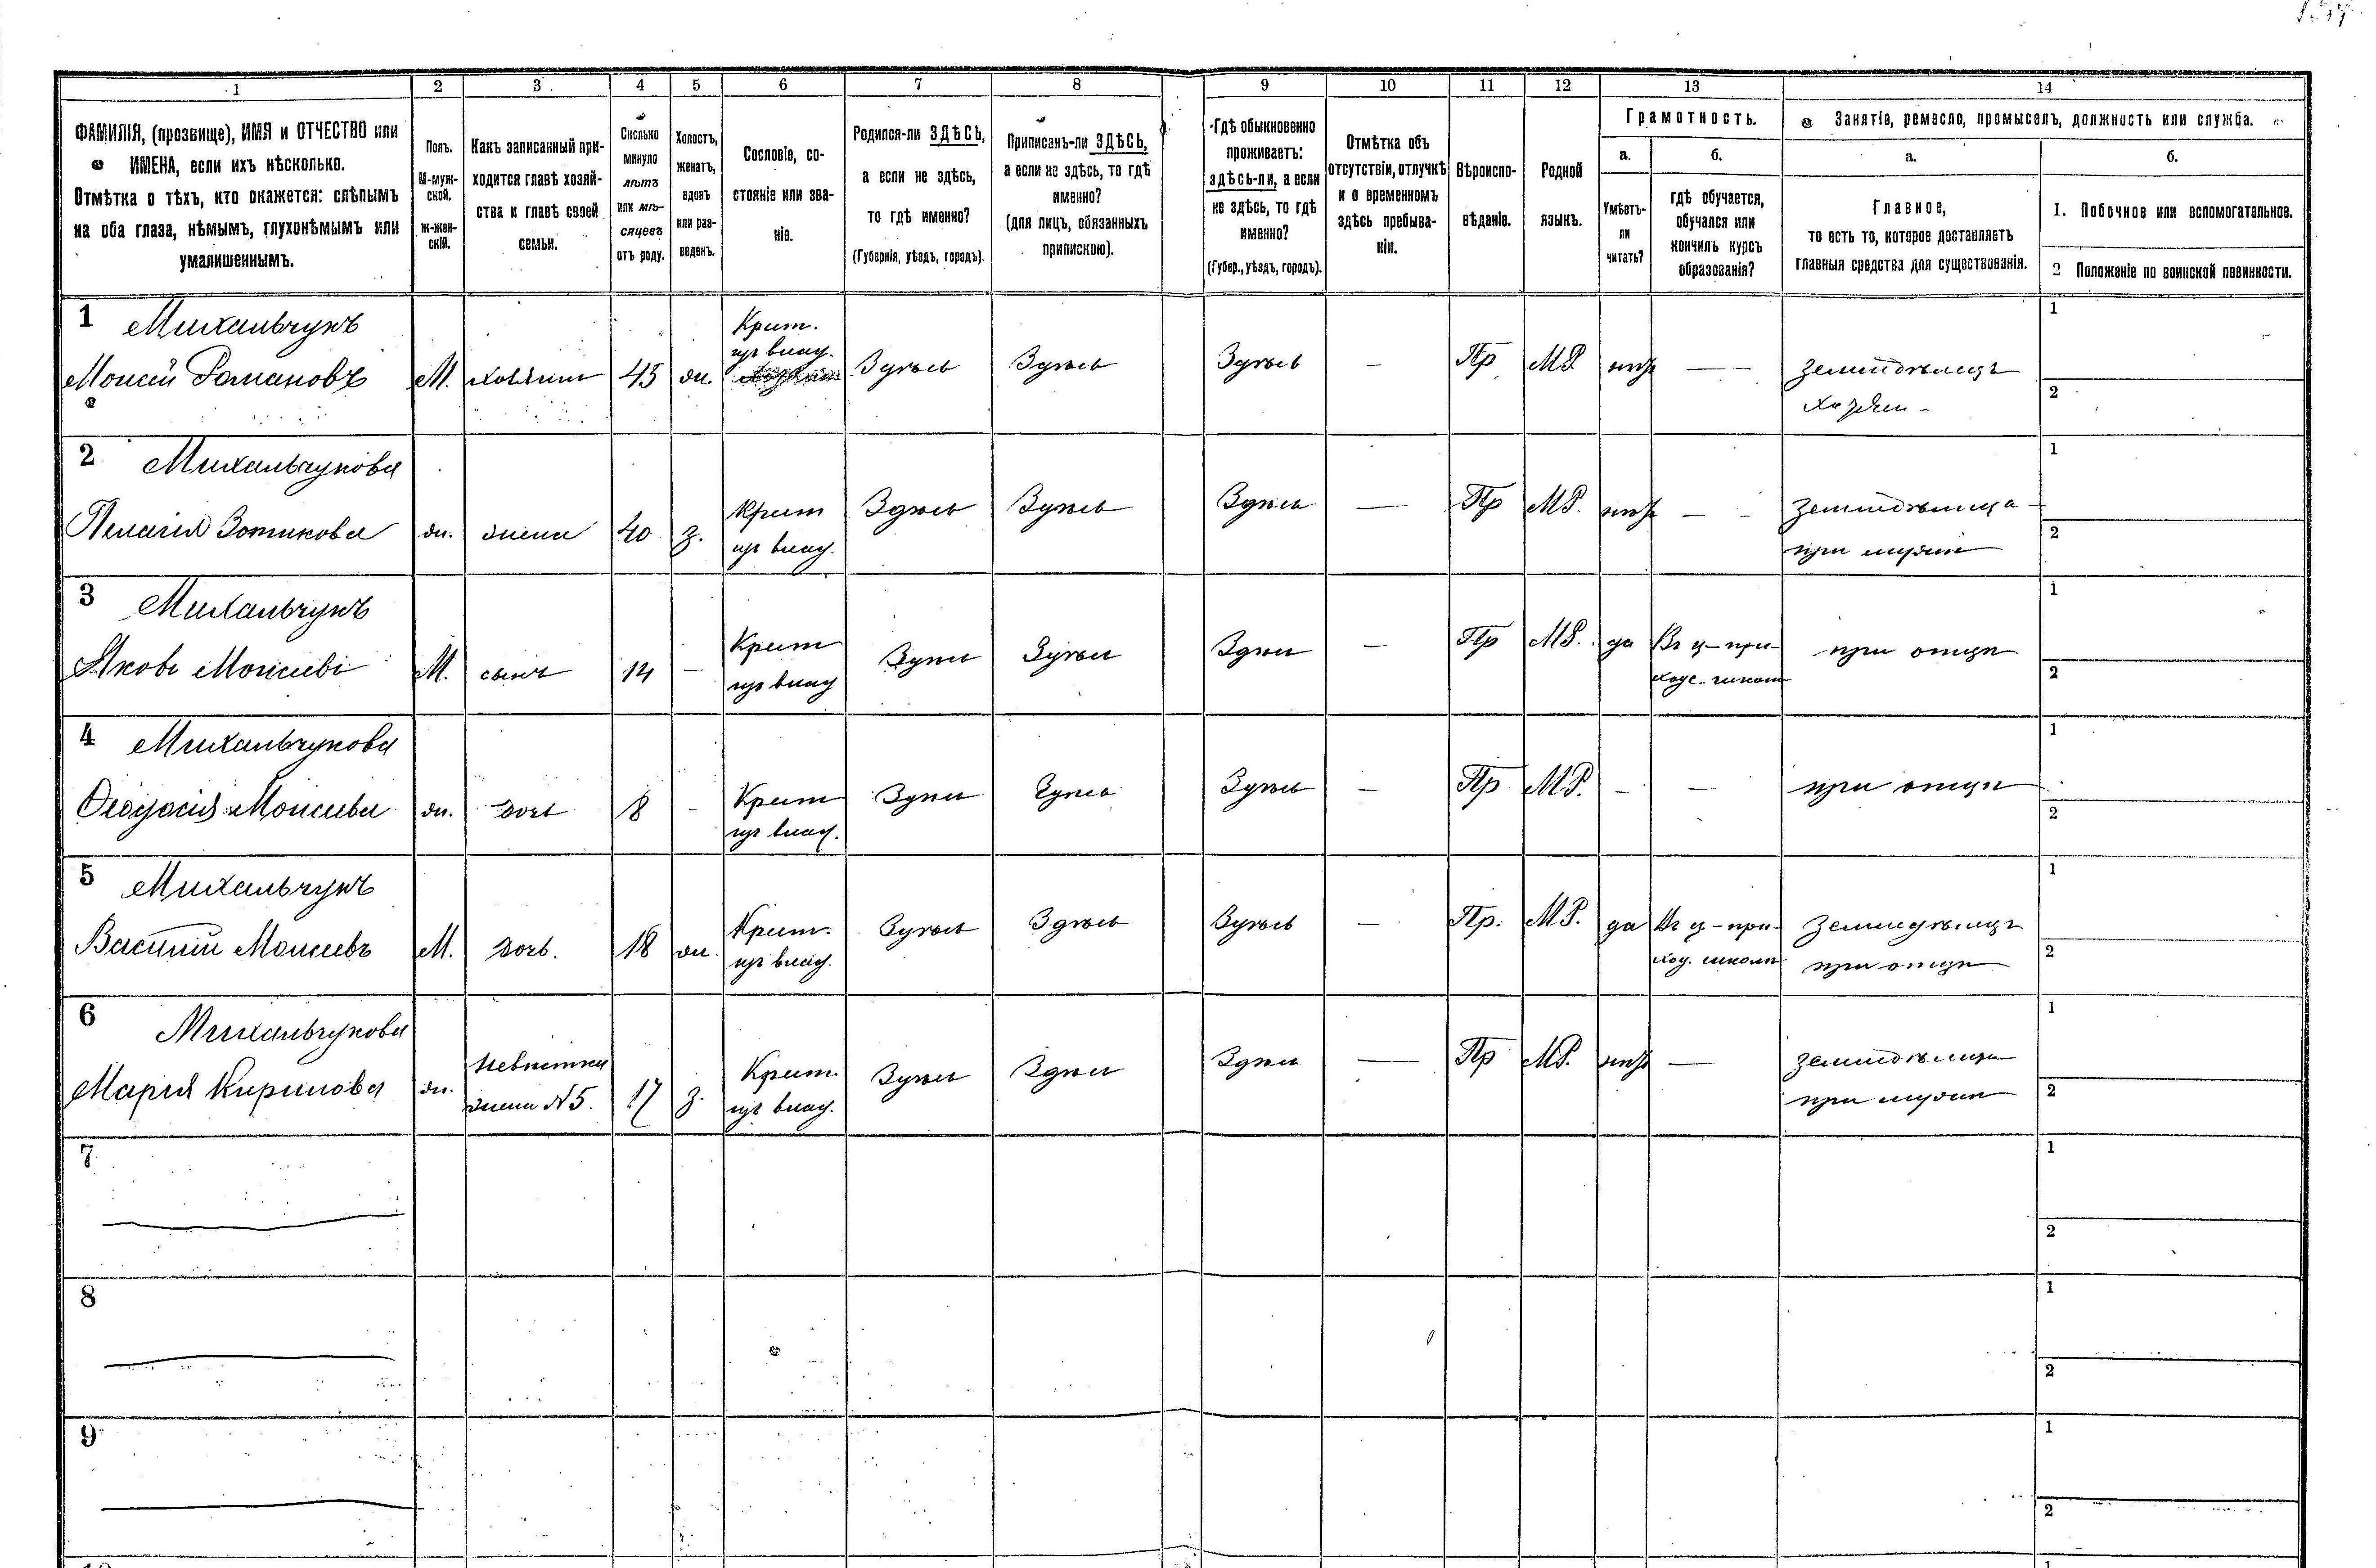 1 2 3 4 5 6 7 8 9 10 11 12 13 14
ФАМИЛІЯ, (прозвище), ИМЯ и ОТЧЕСТВО или
ИМЕНА, если ихъ нѣсколько.
Отмѣтка о тѣхъ, кто окажется: слѣпымъ
на оба глаза, нѣмымъ, глухонѣмымъ или
умалишеннымъ.
Полъ.
М-муж-
ской.
ж-жен-
скій.
Какъ записанный при-
ходится главѣ хозяй-
ства и главѣ своей
семьи.
Сколько
минуло
лѣтъ
или мѣ-
сяцевъ
отъ роду.
Холостъ,
женатъ,
вдовъ
или раз-
веденъ.
Сословіе, со-
стояніе или зва-
ніе.
Родился-ли ЗДѢСЬ,
а если не здѣсь,
то гдѣ именно?
(Губернія, уѣздъ, городъ).
Приписанъ-ли ЗДѢСЬ,
а если не здѣсь, то гдѣ
именно?
(для лицъ, обязанныхъ
припискою).
Гдѣ обыкновенно
проживаетъ:
здѣсь-ли, а если
не здѣсь, то гдѣ
именно?
(Губер., уѣздъ, городъ).
Отмѣтка объ
отсутствіи, отлучкѣ
и о временномъ
здѣсь пребыва-
ніи.
Вѣроиспо-
вѣданіе.
Родной
языкъ.
Грамотность.
а.
Умѣетъ-
ли
читать?
б.
гдѣ обучается,
обучался или
кончилъ курсъ
образованія?
Занятіе, ремесло, промыселъ, должность или служба.
а.
Главное,
то есть то, которое доставляетъ
главныя средства для существованія.
б.
1. Побочное или вспомогательное.
2 Положеніе по воинской повинности.
1 Михальчукъ
Моисей Романовъ
М. хозяинъ 45 ж.
Крест.
изъ влад.
Здѣсь Здѣсь Здѣсь — Пр МР. нѣтъ —
земледѣлецъ
хозяин
1
2
2 Михальчукова
Пелагия Зотикова
ж. жена 40 з.
Крест
изъ влад.
Здѣсь Здѣсь Здѣсь — Пр МР. нѣтъ —
земледѣлица
при мужѣ
1
2
3 Михальчукъ
Яковъ Моисеевъ
М. сынъ 14 —
Крест
изъ влад
Здѣсь Здѣсь Здѣсь — Пр МР. да
Въ ц-при-
ход. школѣ
при отцѣ
1
2
4 Михальчукова
Феодосия Моисеева
ж. дочь 8 -
Крест
изъ влад.
Здѣсь Здѣсь Здѣсь — Пр МР. — —
при отцѣ
1
2
5 Михальчукъ
Василий Моисеевъ
М. дочь. 18 ж.
Крест.
изъ влад.
Здѣсь Здѣсь Здѣсь — Пр. МР. да
Въ ц-при-
ход. школѣ
земледѣлецъ
при отцѣ
1
2
6 Михальчукова
Мария Кирилова
ж.
невѣстка
жена №5.
17 з.
Крест.
изъ влад.
Здѣсь Здѣсь Здѣсь — Пр МР. нѣтъ —
земледѣлица
при мужѣ
1
2
7
1
2
8
1
2
9
1
2